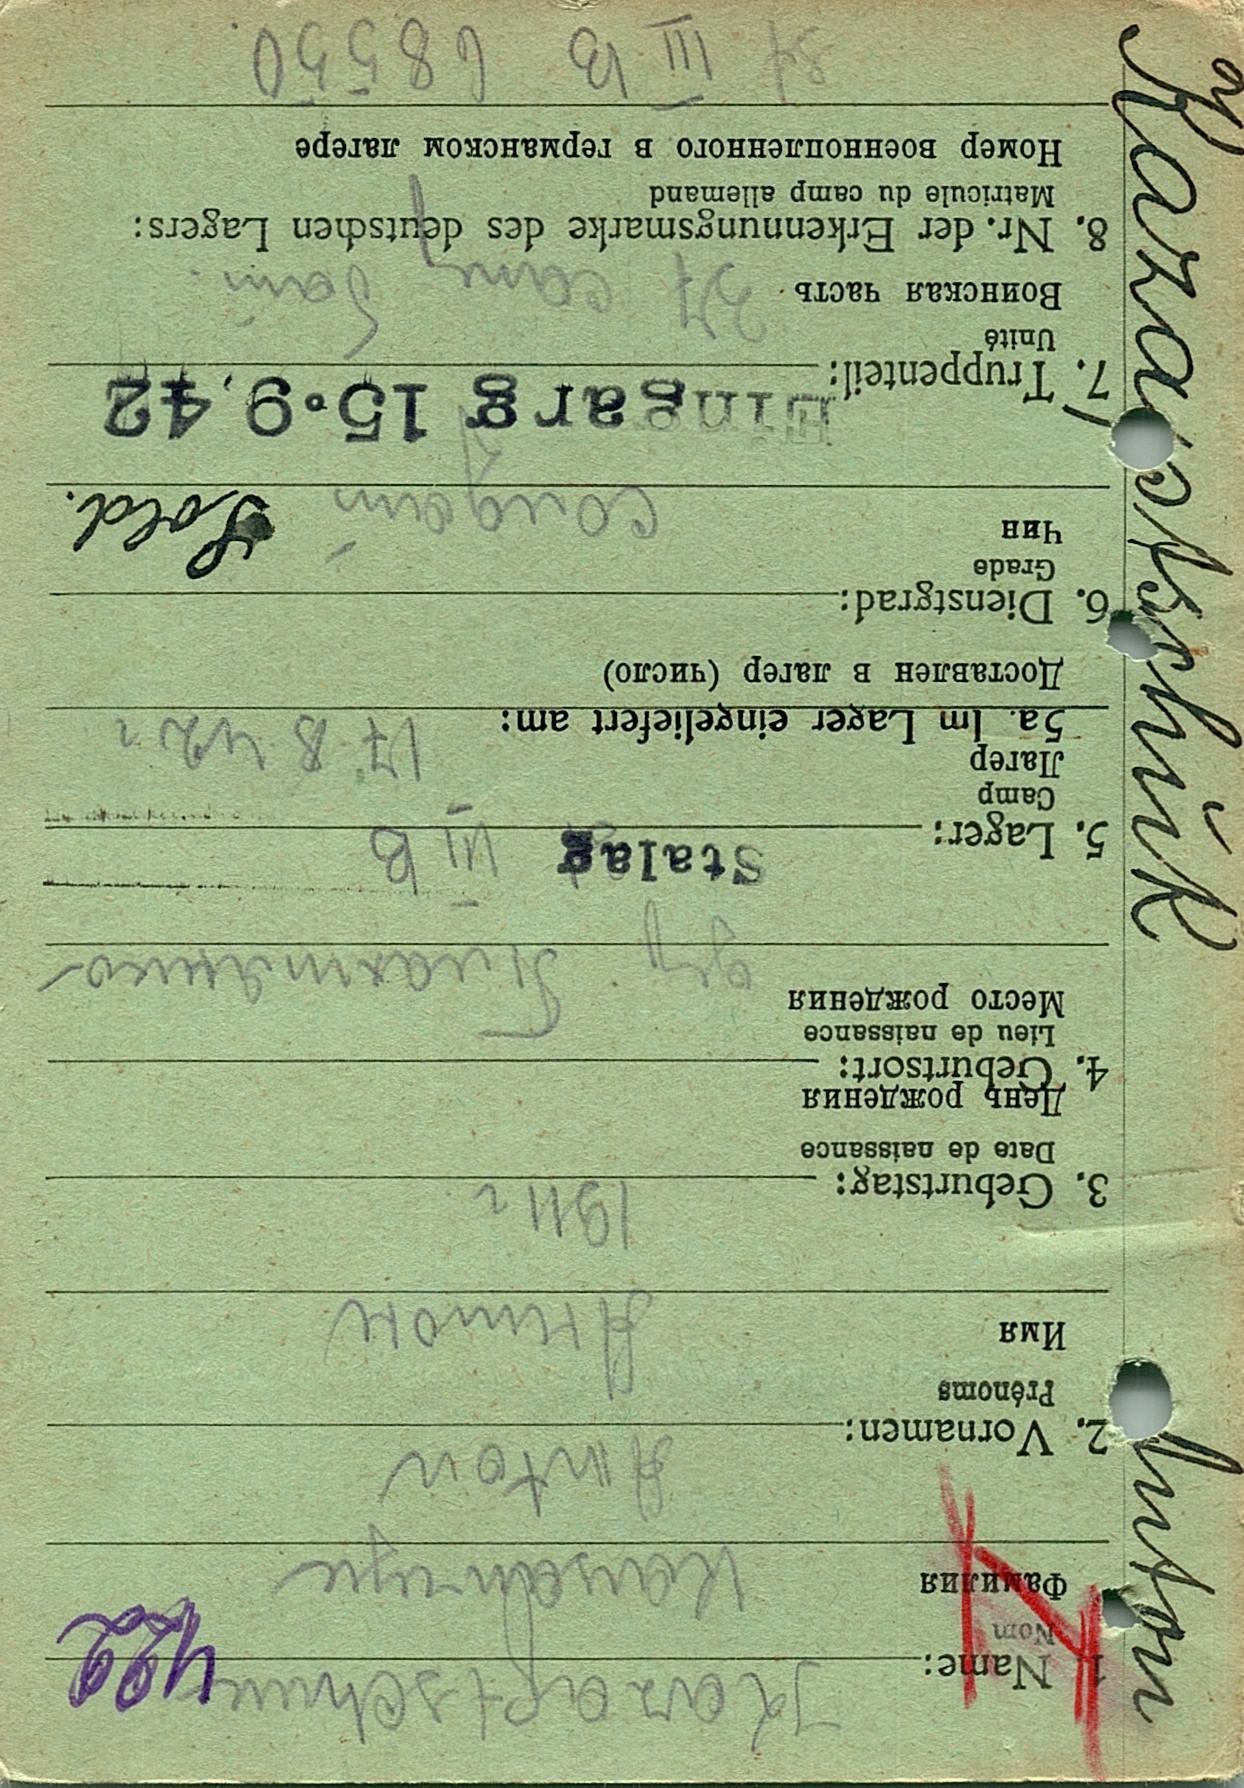 1. Name: Karaptschuk
Nom
422
Фамилия
2. Vornamen: Anton
Prénoms
Имя Антон
3. Geburtstag:
Date de naissance
1911 г
День рождения
4. Geburtsort:
Lieu de naissance
Место рождения
дер.
5. Lager: Stalag III B
Camp
Лагер
5a. Im Lager eingeliefert am: 17. 8 42 г
Доставлен в лагер (число)
6. Dienstgrad:
Grade
Чин солдат Sold.
Eingang 15.9.42
7. Truppenteil:
Unité
Воинская часть 37
8. Nr. der Erkennungsmarke des deutschen Lagers:
Matricule du camp allemand
Номер военнопленного в германском лагере
St III B 68550.
Anton